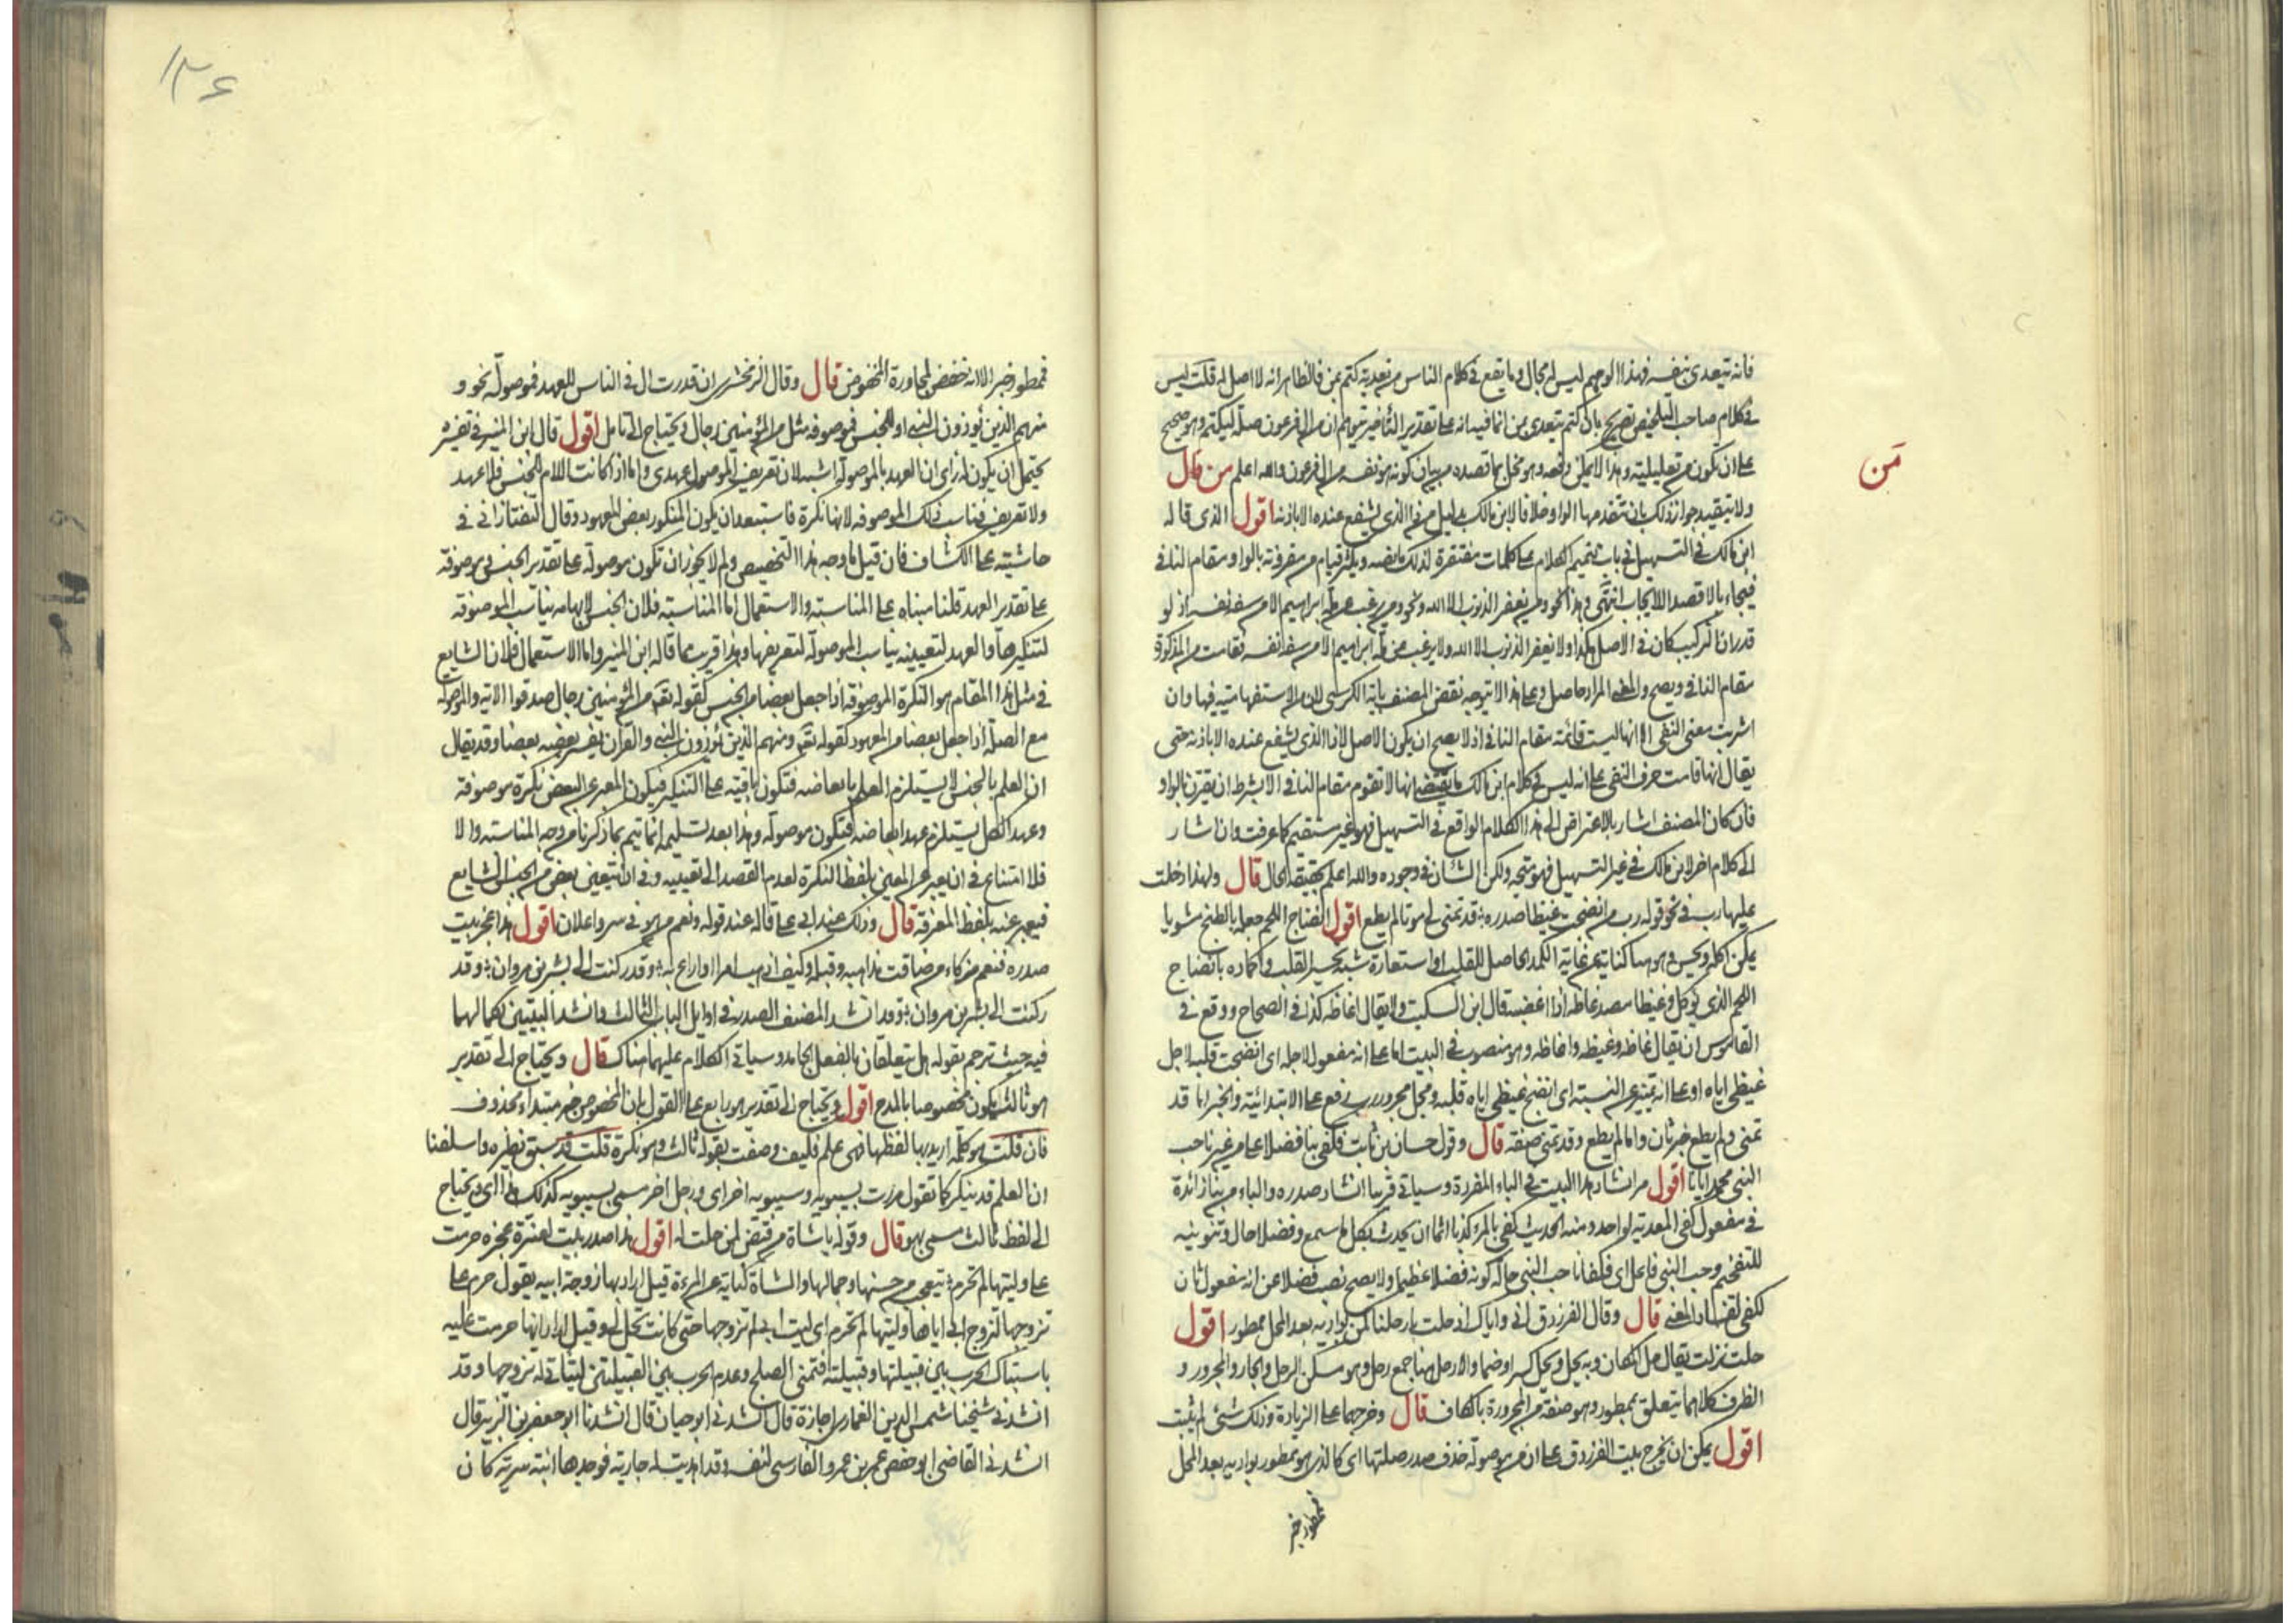 فانه يتعدى بنفسه فهذا الوهم ليس له مجال وما يقع في كلام الناس من تعديته كتم بمن فالظاهر انه لا اصل له قلت ليس
في كلام صاحب التلخيص تصريح بان كتم يتعدى بمن انما فيه انه على تقدير التأخير يتوهم ان من ال فرعون صلة ليكتم وهو صحيح
على ان يكون من تعليلية وهذا لا يمكن دفعه وهو مخل بما قصده من بيان كونه هو نفسه من ال فرعون والله اعلم من قال
مَن
ولا يتقيد جواز ذلك بان يتقدمها الواو خلافا لابن مالك بدليل من ذا الذي يشفع عنده الا باذنه اقول الذي قاله
ابن مالك في التسهيل في باب تتميم الكلام على كلمات مفتقرة لذلك ما نصه ويكثر قيام من مقرونة بالواو مقام النافي
فيجاء بالا قصدا للايجاب انتهى وهذا نحو ومن يغفر الذنوب الا الله ونحو ومن يرغب عن ملة ابراهيم الا من سفه نفسه اذ لو
قدر ان التركيب كان في الاصل هكذا ولا يغفر الذنوب الا الله ولا يرغب عن ملة ابراهيم الا من سفه نفسه فقامت من المذكورة
مقام النافي ويصح والمعنى المراد حاصل وعلى هذا لا يتوجه نقض المصنف باية الكرسي لان من الاستفهامية فيها وان
اشربت معنى النفي الا انها ليست قائمة مقام النافي اذ لا يصح ان يكون الاصل لا ذا الذي يشفع عنده الا باذنه حتى
يقال انها قامت حرف النفي على انه ليس في كلام ابن مالك ما يقتضي انها لا تقوم مقام النافي الا بشرط ان يقترن بالواو
فان كان المصنف اشار بالاعتراض الى هذا الكلام الواقع في التسهيل فهو غير مستقيم كما عرفت وان اشار
الى كلام اخر لابن مالك في غير التسهيل فهو متجه ولكن الشان في وجوده والله اعلم بحقيقة الحال قال ولهذا دخلت
عليها رب في نحو قوله رب من انضجت غيظا صدره ؛ قد تمنى لي موتا لم يطع اقول انضاج اللحم جعله بالطبخ مشويا
يمكن اكله ويحسن وهو هنا كناية عن غاية الكمد الحاصل للقلب او استعارة شبه تحسير القلب واكماده بانضاج
اللحم الذي يؤكل وغيظا مصدر غاظه اذا اغضبه قال ابن السكيت ولا يقال اغاظه كذا في الصحاح ووقع في
القاموس ان يقال غاظه وغيظه واغاظه وهو منصوب في البيت اما على انه مفعول لاجله اى انضجت قلبه لاجل
غيظي اياه او على انه تمييز عن النسبة اى انضج غيظي اياه قلبه ومحل مجرور رب رفع على الابتدائية والخبر اما قد
تمنى ولم يطع خبر ثان واما لم يطع وقد تمنى صفة قال وقول حسان بن ثابت فكفى بنا فضلا على من غيرنا حب
النبي محمد ايانا اقول مر انشاد هذا البيت في الباء المفردة وسياتي قريبا انشاد صدره والباء من بنا زائدة
في مفعول كفى المتعدية لواحد ومنه الحديث كفى بالمرء كذبا اثما ان يحدث بكل ما سمع وفضلا حال وتنوينه
للتفخيم وحب النبي فاعل اى فكفانا حب النبي حاله كونه فضلا عظيما ولا يصح نصب فضلا عن انه مفعول ثان
لكفى لفساد المعنى قال وقال الفرزدق اني واياك اذ حلت بارحلنا كمن بواديه بعد المحل ممطور اقول
حلت نزلت يقال حل المكان وبه يحل ويحل كسرا وضما والارحل هنا جمع رحل وهو مسكن الرجل والجار والمجرور و
الظرف كلاهما يتعلق بممطور وهو صفة من المجرورة بالكاف قال وخرجهما على الزيادة وذلك شئ لم يثبت
اقول يمكن ان يخرج بيت الفرزدق على ان من موصولة حذف صدر صلتها اى كالذي هو ممطور بواديه بعد المحل
فممطور خبر
١٣٤
فممطور خبر الا انه خفض لمجاورة المخفوض قال وقال الزمخشري ان قدرت ال في الناس للعهد فموصولة نحو و
منهم الذين يؤذون النبي او للجنس فموصوفة مثل من المؤمنين رجال ويحتاج الى تامل اقول قال ابن المنير في تفسيره
يحتمل ان يكون له رأى ان العهد بالموصولة اشبه لان تعريف الموصول عهدي واما اذا كانت اللام للجنس فلا عهد
ولا تعريف فناسب ذلك الموصوفة لانها نكرة فاستبعد ان يكون المنكور بعض المعهود وقال التفتازاني في
حاشيته على الكشاف فان قيل ما وجه هذا التخصيص ولم لا يجوز ان تكون موصولة على تقدير الجنس وموصوفة
على تقدير العهد قلنا مبناه على المناسبة والاستعمال اما المناسبة فلان الجنس لابهامه يناسب الموصوفة
لتنكيرها والعهد لتعيينه يناسب الموصولة لتعريفها وهذا قريب مما قاله ابن المنير واما الاستعمال فلان الشايع
في مثل هذا المقام هو النكرة الموصوفة اذا جعل بعضا من الجنس كقوله تعم من المؤمنين رجال صدقوا الاية والموصولة
مع الصلة اذا جعل بعضا من المعهود كقوله تعم ومنهم الذين يؤذون النبي والقرآن يفسر بعضه بعضا وقد يقال
ان العلم بالجنس لا يستلزم العلم بابعاضه فتكون باقية على التنكير فيكون المعبر عن البعض نكرة موصوفة
وعهد الكل يستلزم عهد ابعاضه فتكون موصولة وهذا بعد تسليمه انما يتم بما ذكرنا من وجه المناسبة والا
فلا امتناع في ان يعبر عن المعين بلفظ النكرة لعدم القصد الى تعيينه وفي ان يتعين بعض من الجنس الشايع
فيعبر عنه بلفظ المعرفة قال وذلك عند ابي على قاله عند قوله ونعم من هو في سر واعلان اقول هذا عجز بيت
صدره فنعم مزكاء من ضاقت مذاهبه وقبله وكيف ارهب امرا او اراع له ؛ وقد ركنت الى بشر بن مروان ؛ وقد
ركنت الى بشر بن مروان ؛ وقد انشد المصنف الصدر في اوايل الباب الثالث وانشد البيتين بكمالهما
فيه حيث ترجم بقوله هل يتعلقان بالفعل الجامد وسياتي الكلام عليهما هناك قال ويحتاج الى تقدير
هو ثالث يكون مخصوصا بالمدح اقول ويحتاج الى تقدير هو رابع على القول بان المخصوص خبر مبتداء محذوف
فان قلت هو كلمة اريد بها لفظها فهي علم فكيف وصفت بقوله ثالث وهو نكرة قلت قد سبق نظيره واسلفنا
ان العلم قد ينكر كما تقول مررت بسيبويه وسيبويه اخر اى ورجل اخر سمى بسيبويه كذلك هذا اى ويحتاج
الى لفظ ثالث مسمى بهو قال وقوله يا شاة من قنص لمن حلت له اقول هذا صدر بيت لعنترة عجزه حرمت
على وليتها لم تحرم ؛ تعجب من حسنها وجمالها والشاة كناية عن المرءة قيل اراد بها زوجة ابيه يقول حرم على
تزوجها لتزوج ابى اياها وليتها لم تحرم اى ليت ابى لم تزوجها حتى كانت تحل لى وقيل اراد انها حرمت عليه
باشتباك الحرب بين قبيلتها وقبيلته فتمنى الصلح وعدم الحرب بين القبيلتين ليتاتى له تزوجها وقد
انشدني شيخنا شمس الدين الغماري اجازة قال انشدني ابو حيان قال انشدنا ابو جعفر بن الزبير قال
انشدني القاضي ابو حفص عمر بن عمرو الفارسي لنفسه وقد اهديت له جارية فوجدها ابنة سرية كان